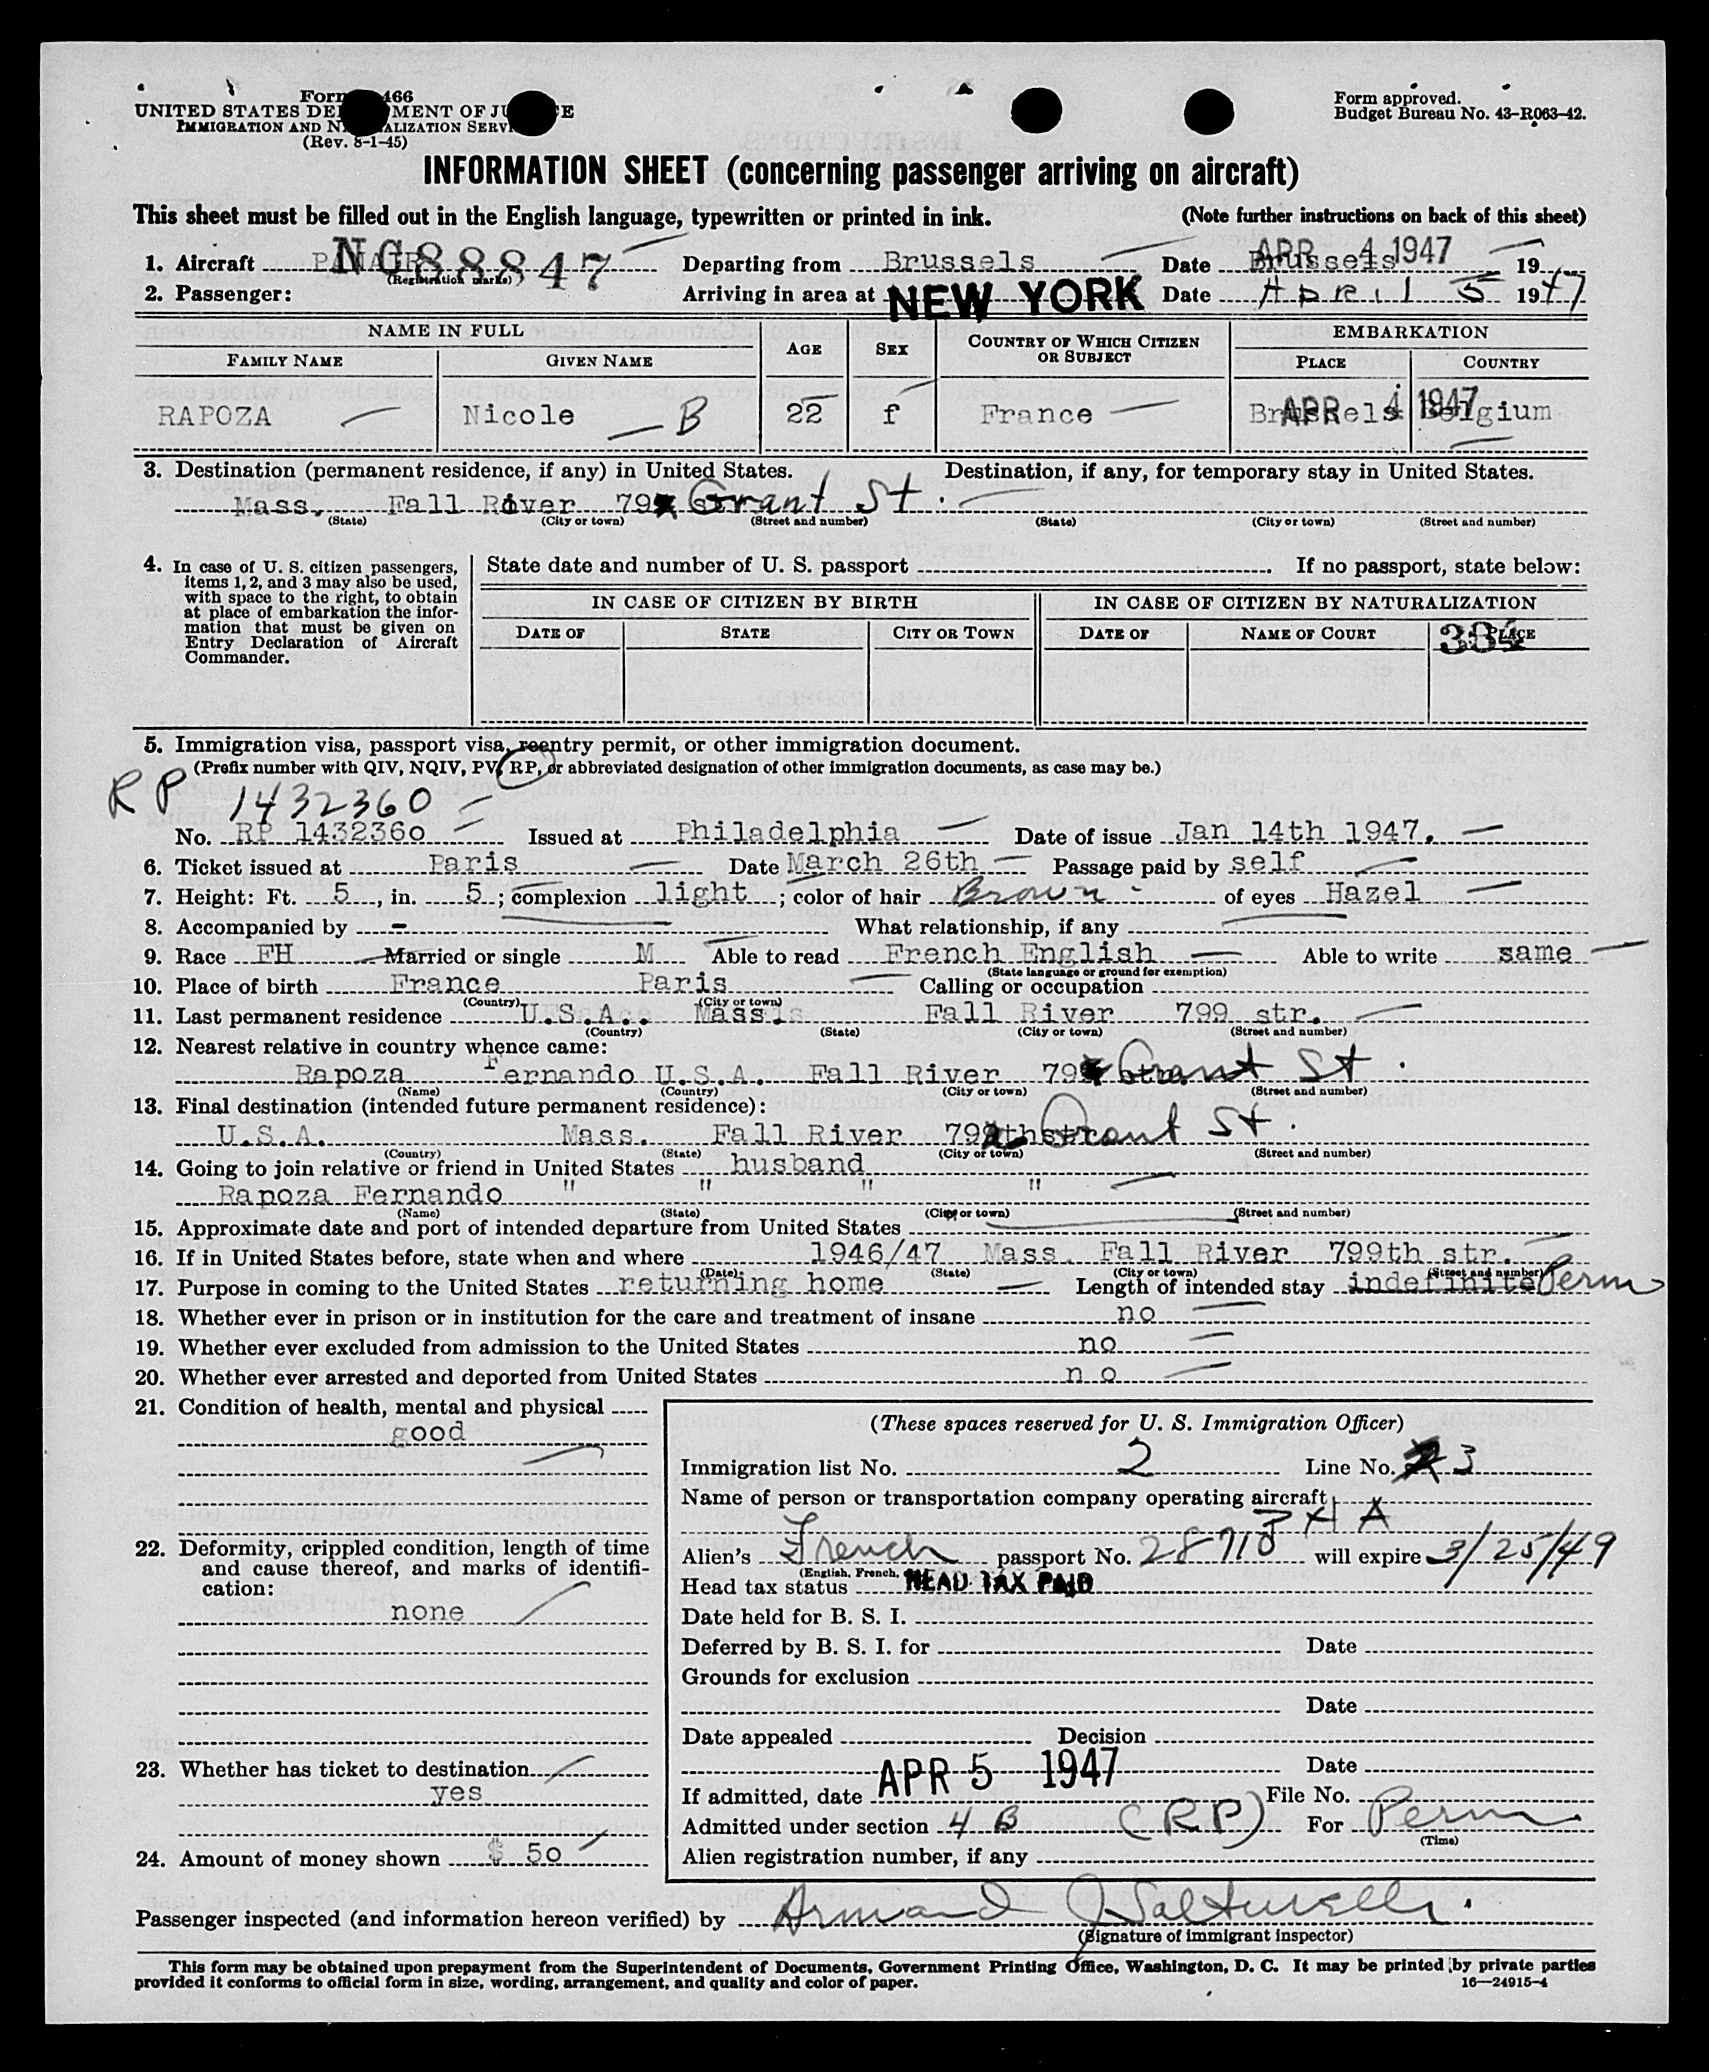 Form 466
UNITED STATES DE MENT OF JU E
IMMIGRATION AND N ALIZATION SERVI
(Rev. 8-1-45)
Form approved.
Budget Bureau No. 43-R063-42.
INFORMATION SHEET (concerning passenger arriving on aircraft)
This sheet must be filled out in the English language, typewritten or printed in ink. (Note further instructions on back of this sheet)
1. Aircraft PANAIR NC88847 (Registration marks) Departing from Brussels Date Brussels APR 4 1947 19
2. Passenger: Arriving in area at NEW YORK Date April 5 1947
NAME IN FULL AGE SEX COUNTRY OF WHICH CITIZEN OR SUBJECT EMBARKATION
FAMILY NAME GIVEN NAME PLACE COUNTRY
RAPOZA Nicole B 22 f France Brussels APR 4 1947 Belgium
3. Destination (permanent residence, if any) in United States. Destination, if any, for temporary stay in United States.
Mass. Fall River 79 Grant St.
(State) (City or town) (Street and number) (State) (City or town) (Street and number)
4. In case of U. S. citizen passengers, items 1, 2, and 3 may also be used, with space to the right, to obtain at place of embarkation the information that must be given on Entry Declaration of Aircraft Commander.
State date and number of U. S. passport If no passport, state below:
IN CASE OF CITIZEN BY BIRTH IN CASE OF CITIZEN BY NATURALIZATION
DATE OF STATE CITY OR TOWN DATE OF NAME OF COURT PLACE
384
5. Immigration visa, passport visa, reentry permit, or other immigration document.
(Prefix number with QIV, NQIV, PV, RP, or abbreviated designation of other immigration documents, as case may be.)
RP 1432360
No. RP 1432360 Issued at Philadelphia Date of issue Jan 14th 1947.
6. Ticket issued at Paris Date March 26th Passage paid by self
7. Height: Ft. 5, in. 5; complexion light; color of hair Brown of eyes Hazel
8. Accompanied by - What relationship, if any
9. Race FH Married or single M Able to read French English Able to write same
(State language or ground for exemption)
10. Place of birth France Paris Calling or occupation
(Country) (City or town)
11. Last permanent residence U.S.A. Mass. Fall River 799 str.
(Country) (State) (City or town) (Street and number)
12. Nearest relative in country whence came:
Rapoza Fernando U.S.A. Fall River 79 Grant St.
(Name) (Country) (City or town) (Street and number)
13. Final destination (intended future permanent residence):
U.S.A. Mass. Fall River 79 Grant St.
(Country) (State) (City or town) (Street and number)
14. Going to join relative or friend in United States husband
Rapoza Fernando " " " "
(Name) (State) (City or town) (Street and number)
15. Approximate date and port of intended departure from United States
16. If in United States before, state when and where 1946/47 Mass. Fall River 799th str.
(Date) (State) (City or town) (Street and number)
17. Purpose in coming to the United States returning home Length of intended stay indefinite Perm
18. Whether ever in prison or in institution for the care and treatment of insane no
19. Whether ever excluded from admission to the United States no
20. Whether ever arrested and deported from United States no
21. Condition of health, mental and physical
good
22. Deformity, crippled condition, length of time and cause thereof, and marks of identification:
none
23. Whether has ticket to destination
yes
24. Amount of money shown $ 50
(These spaces reserved for U. S. Immigration Officer)
Immigration list No. 2 Line No. 3
Name of person or transportation company operating aircraft
P A A
Alien's French passport No. 28710 will expire 3/25/49
(English, French,
Head tax status HEAD TAX PAID
Date held for B. S. I.
Deferred by B. S. I. for Date
Grounds for exclusion
Date
Date appealed Decision
Date
If admitted, date APR 5 1947 File No.
Admitted under section 4 B (RP) For Perm
(Time)
Alien registration number, if any
Passenger inspected (and information hereon verified) by Armand J
(Signature of immigrant inspector)
This form may be obtained upon prepayment from the Superintendent of Documents, Government Printing Office, Washington, D. C. It may be printed by private parties
provided it conforms to official form in size, wording, arrangement, and quality and color of paper. 16—24915-4